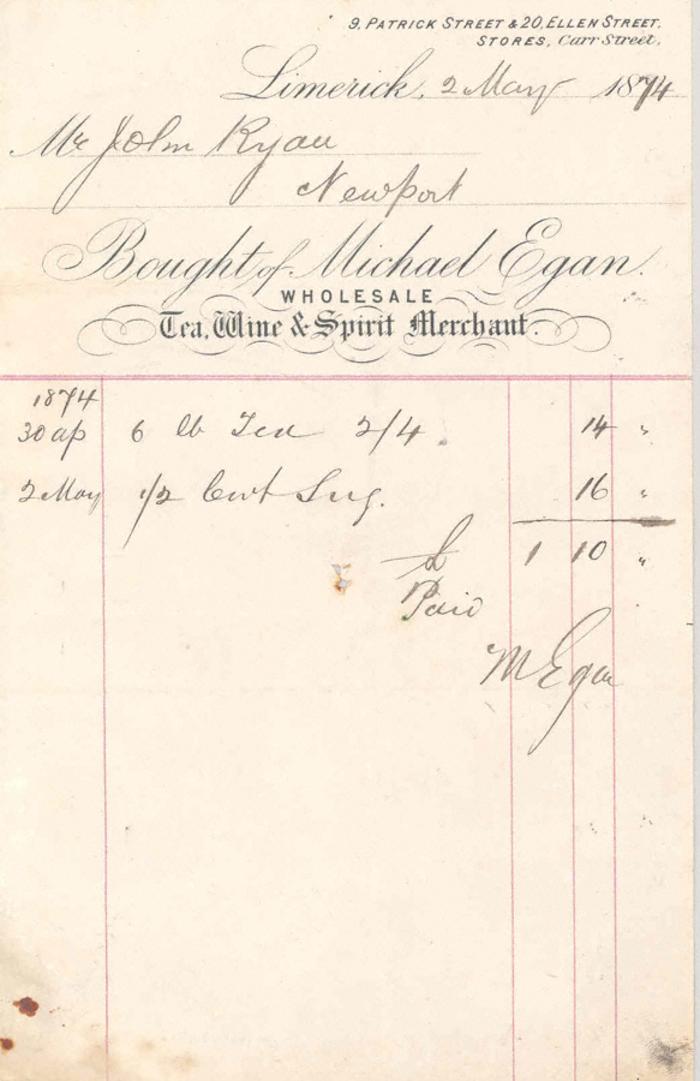 9, PATRICK STREET & 20, ELLEN STREET,
STORES, Carr Street,
Limerick, 2 May 1874
Mr John Ryan
Newport
Bought of Michael Egan.
WHOLESALE
Tea, Wine & Spirit Merchant.
1874
30 ap 6 lb Tea 2/4 . 14 "
2 May 1/2 Cwt Sug. 16 "
£ 1 10 "
Paid
M Egan